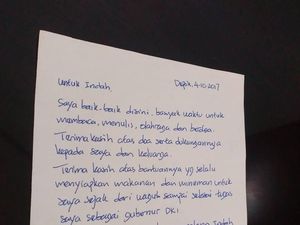 Untuk Indah. Depok, 4-10-2017
Saya baik-baik disini, banyak waktu untuk
membaca, menulis, olahraga dan berdoa.
Terima kasih atas doa serta dukungannya
kepada saya dan keluarga.
Terima kasih atas bantuannya yg selalu
menyiapkan makanan dan minuman untuk
saya sejak dari wagub sampai selesai tugas
saya sebagai gubernur DKI.
Indah